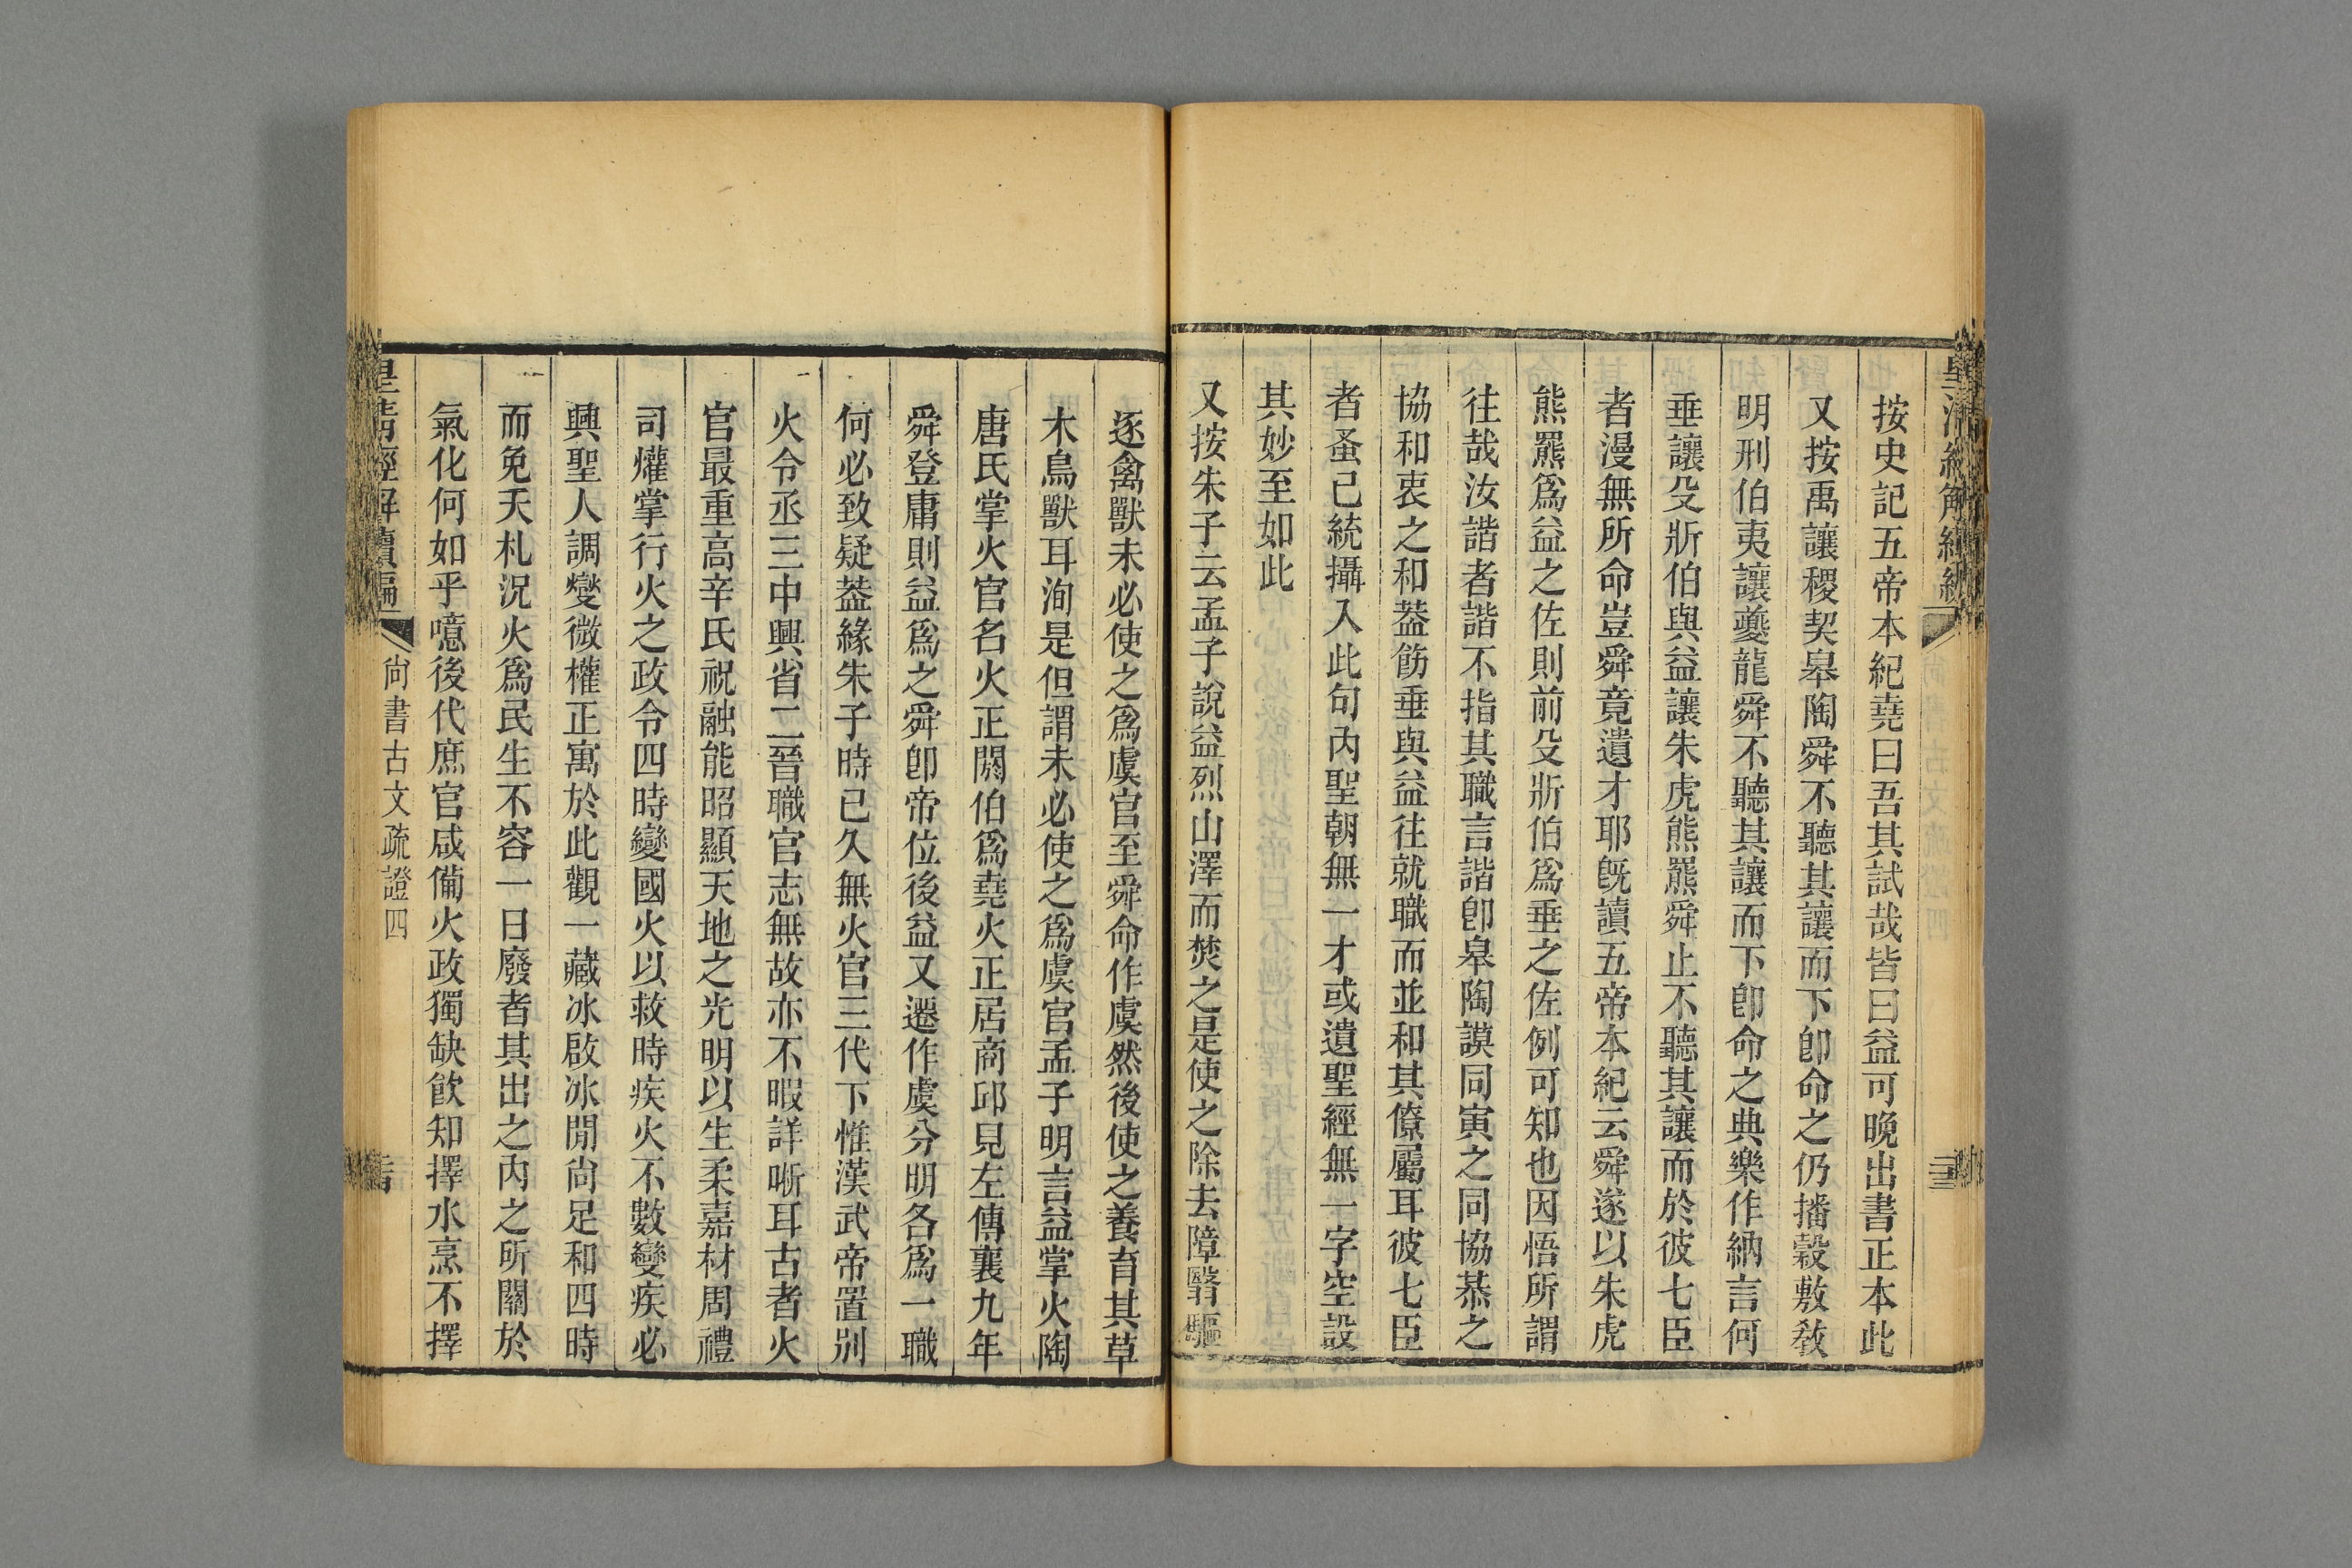 按史記五帝本紀堯曰吾其試哉皆曰益可晚出書正本此
又按禹讓稷契皋陶舜不聽其讓而下卽命之仍播穀敷敎
明刑伯夷讓夔龍舜不聽其讓而下卽命之典樂作納言何
垂讓殳斨伯與益讓朱虎熊羆舜止不聽其讓而於彼七臣
者漫無所命豈舜竟遺才耶旣讀五帝本紀云舜遂以朱虎
熊羆爲益之佐則前殳斨伯爲垂之佐例可知也因悟所謂
往哉汝諧者諧不指其職言諧卽皋陶謨同寅之同協恭之
協和衷之和葢飭垂與益往就職而並和其僚屬耳彼七臣
者蚤已統攝入此句內聖朝無一才或遺聖經無一字空設
其妙至如此
又按朱子云孟子說益烈山澤而焚之是使之除去障翳驅
逐禽獸未必使之爲虞官至舜命作虞然後使之養育其草
木鳥獸耳洵是但謂未必使之爲虞官孟子明言益掌火陶
唐氏掌火官名火正閼伯爲堯火正居商邱見左傳襄九年
舜登庸則益爲之舜卽帝位後益又遷作虞分明各爲一職
何必致疑葢緣朱子時已久無火官三代下惟漢武帝置別
火令丞三中興省二晉職官志無故亦不暇詳晣耳古者火
官最重高辛氏祝融能昭顯天地之光明以生柔嘉材周禮
司爟掌行火之政令四時變國火以救時疾火不數變疾必
興聖人調燮微權正寓於此觀一藏冰啟冰閒尙足和四時
而免夭札況火爲民生不容一日廢者其出之內之所關於
氣化何如乎噫後代庶官咸備火政獨缺飮知擇水烹不擇
皇淸經解續編
尙書古文疏證四